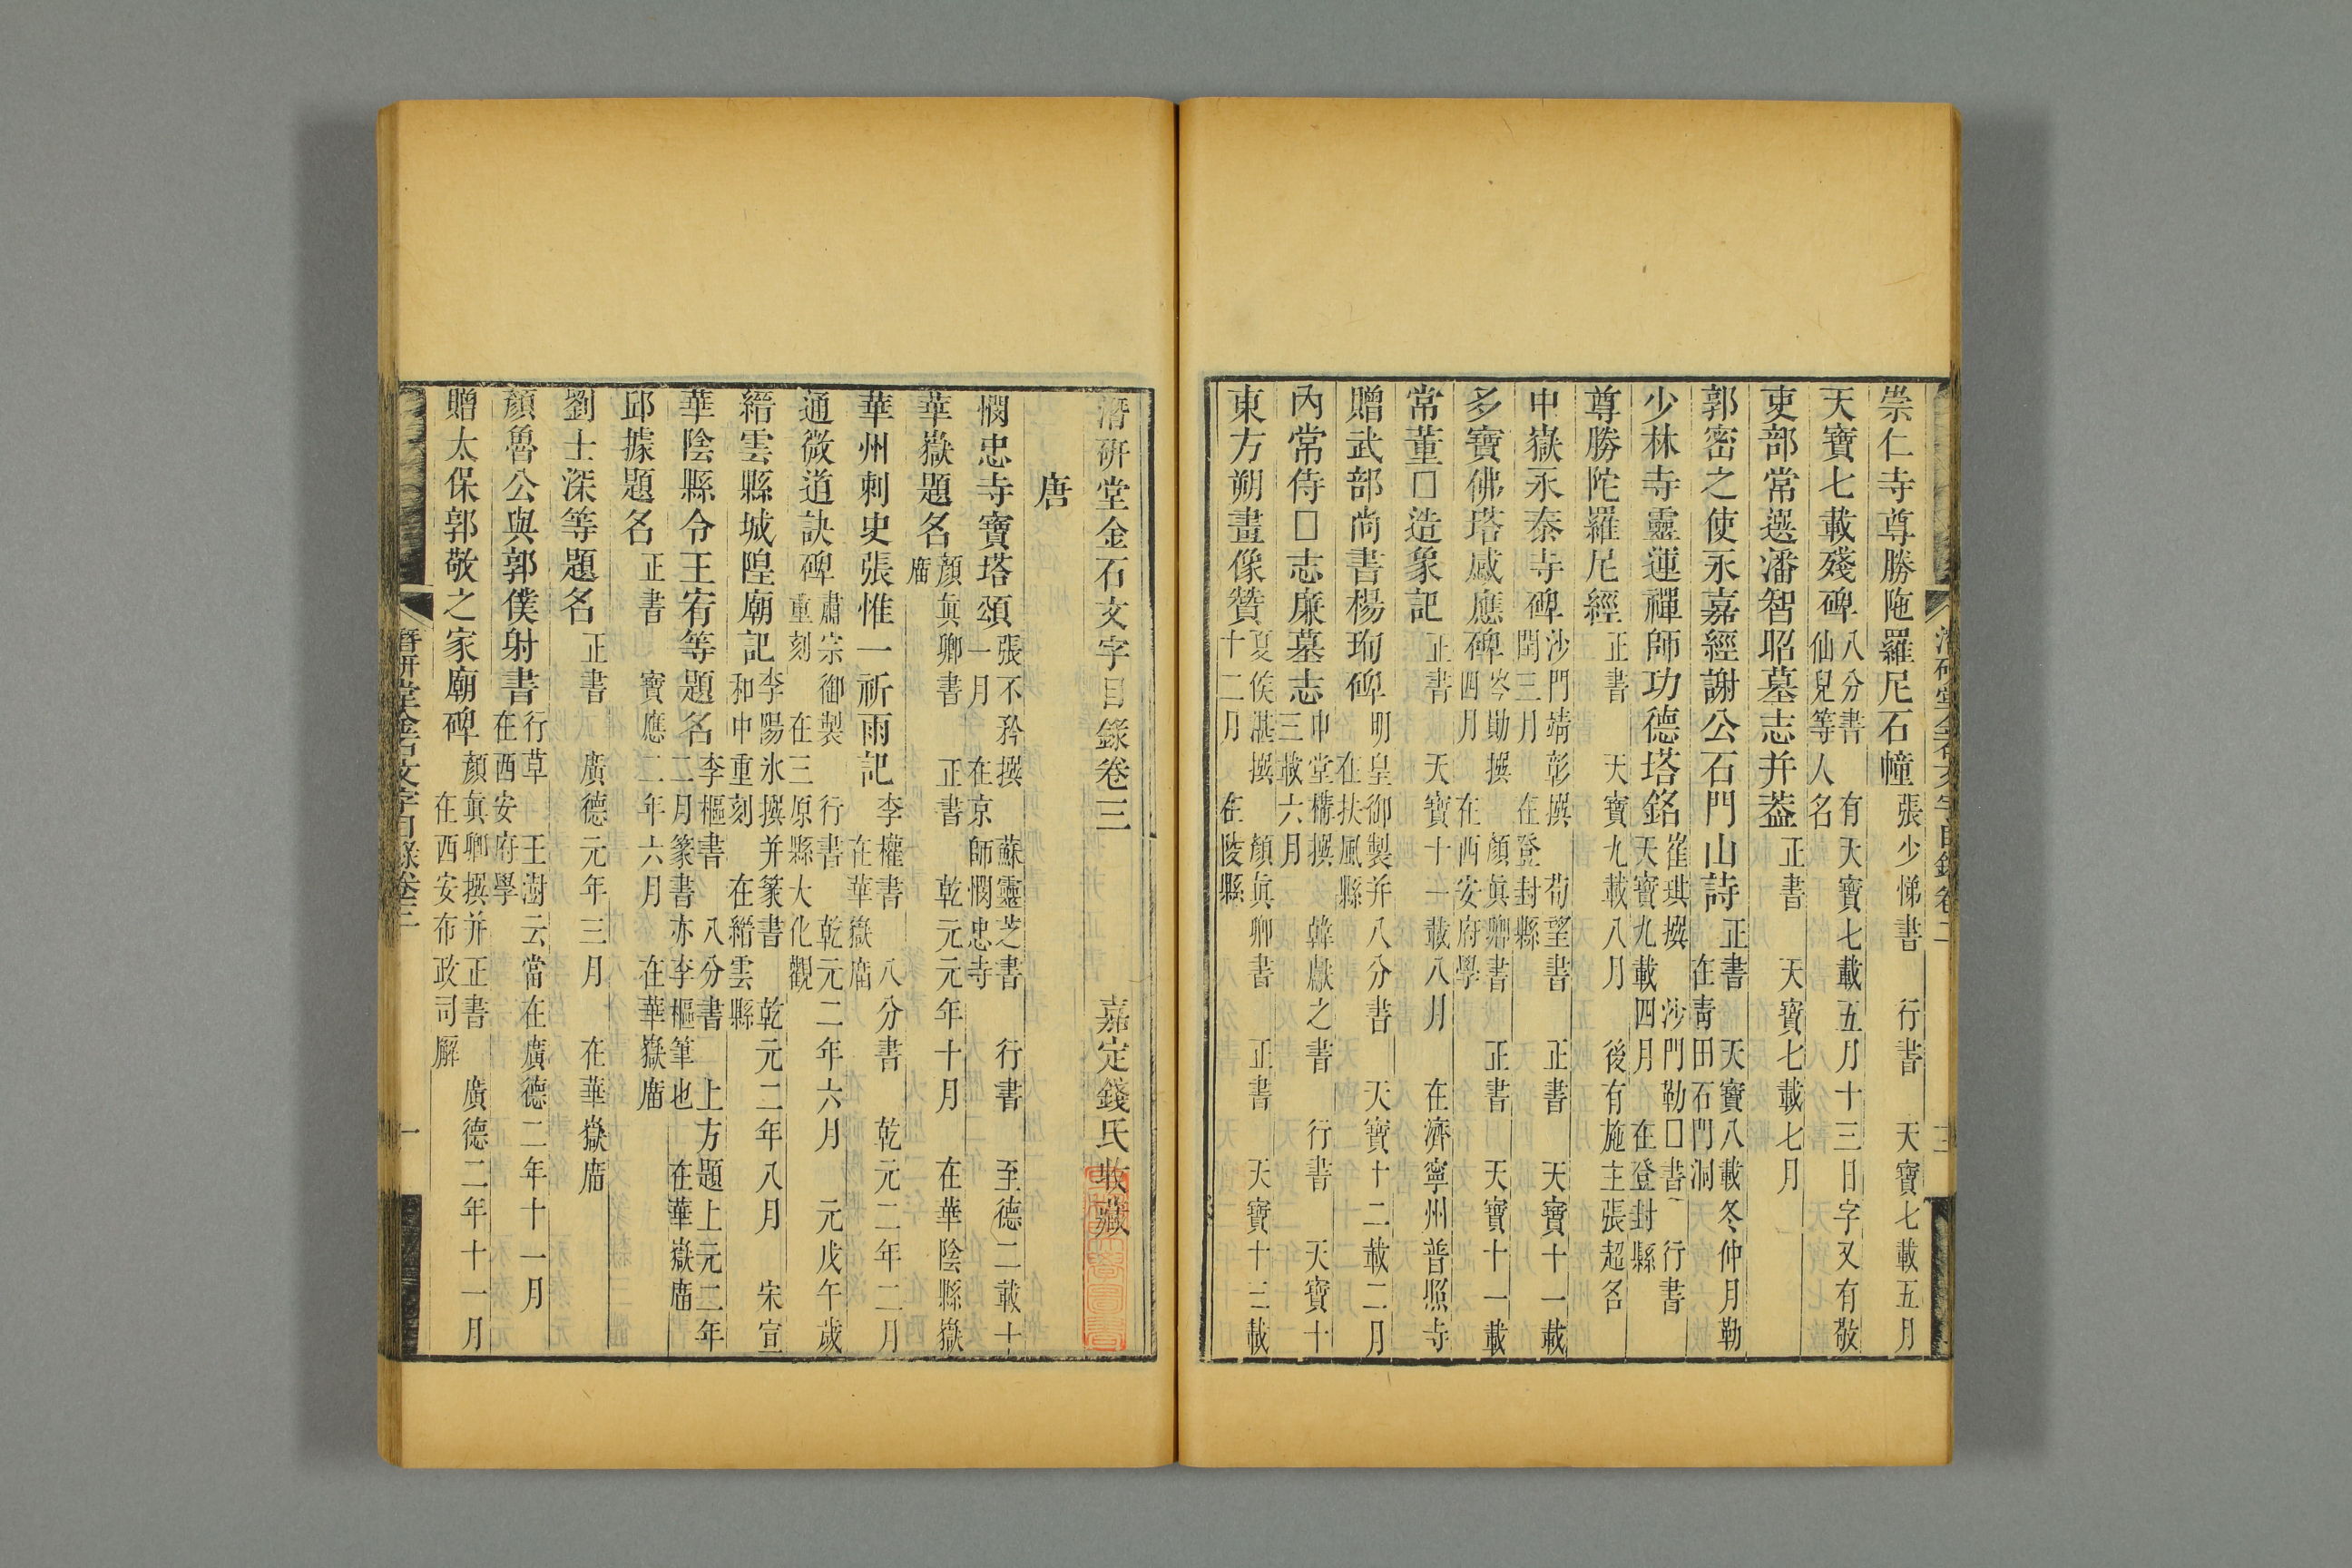 崇仁寺尊勝陁羅尼石幢 張少悌書 行書 天寶七載五月
天寶七載殘碑 八分書 有天寶七載五月十三日字又有敬
仙兒等人名
吏部常選潘智昭墓志并葢 正書 天寶七載七月
郭密之使永嘉經謝公石門山詩 正書 天寶八載冬仲月勒
在青田石門洞
少林寺靈運禪師功德塔銘 崔琪撰 沙門勒囗書 行書
天寶九載四月 在登封縣
尊勝陀羅尼經 正書 天寶九載八月 後有施主張超名
中嶽永泰寺碑 沙門靖彰撰 荀望書 正書 天寶十一載
閏三月 在登封縣
多寶佛塔感應碑 岑勛撰 顏眞卿書 正書 天寶十一載
四月 在西安府學
常董囗造象記 正書 天寶十一載八月 在濟寧州普照寺
贈武部尚書楊珣碑 明皇御製并八分書 天寶十二載二月
在扶風縣
內常侍囗志廉墓志 申堂構撰 韓獻之書 行書 天寶十
三載六月
東方朔畫像贊 夏侯湛撰 顏眞卿書 正書 天寶十三載
十二月 在陵縣
潛研堂金石文字目錄卷二 三
潛研堂金石文字目錄卷三 嘉定錢氏收藏
唐
憫忠寺寶塔頌 張不矜撰 蘇靈芝書 行書 至德二載十
一月 在京師憫忠寺
華嶽題名 顏眞卿書 正書 乾元元年十月 在華陰縣嶽
廟
華州刺史張惟一祈雨記 李權書 八分書 乾元二年二月
在華嶽廟
通微道訣碑 肅宗御製 行書 乾元二年六月 元戊午歲
重刻 在三原縣大化觀
縉雲縣城隍廟記 李陽氷撰并篆書 乾元二年八月 宋宣
和中重刻 在縉雲縣
華陰縣令王宥等題名 李樞書 八分書 上方題上元二年
二月篆書亦李樞筆也 在華嶽廟
邱據題名 正書 寶應二年六月 在華嶽廟
劉士深等題名 正書 廣德元年三月 在華嶽廟
顏魯公與郭僕射書 行草 王澍云當在廣德二年十一月
在西安府學
贈太保郭敬之家廟碑 顏眞卿撰并正書 廣德二年十一月
在西安布政司廨
潛研堂金石文字目錄卷三 一